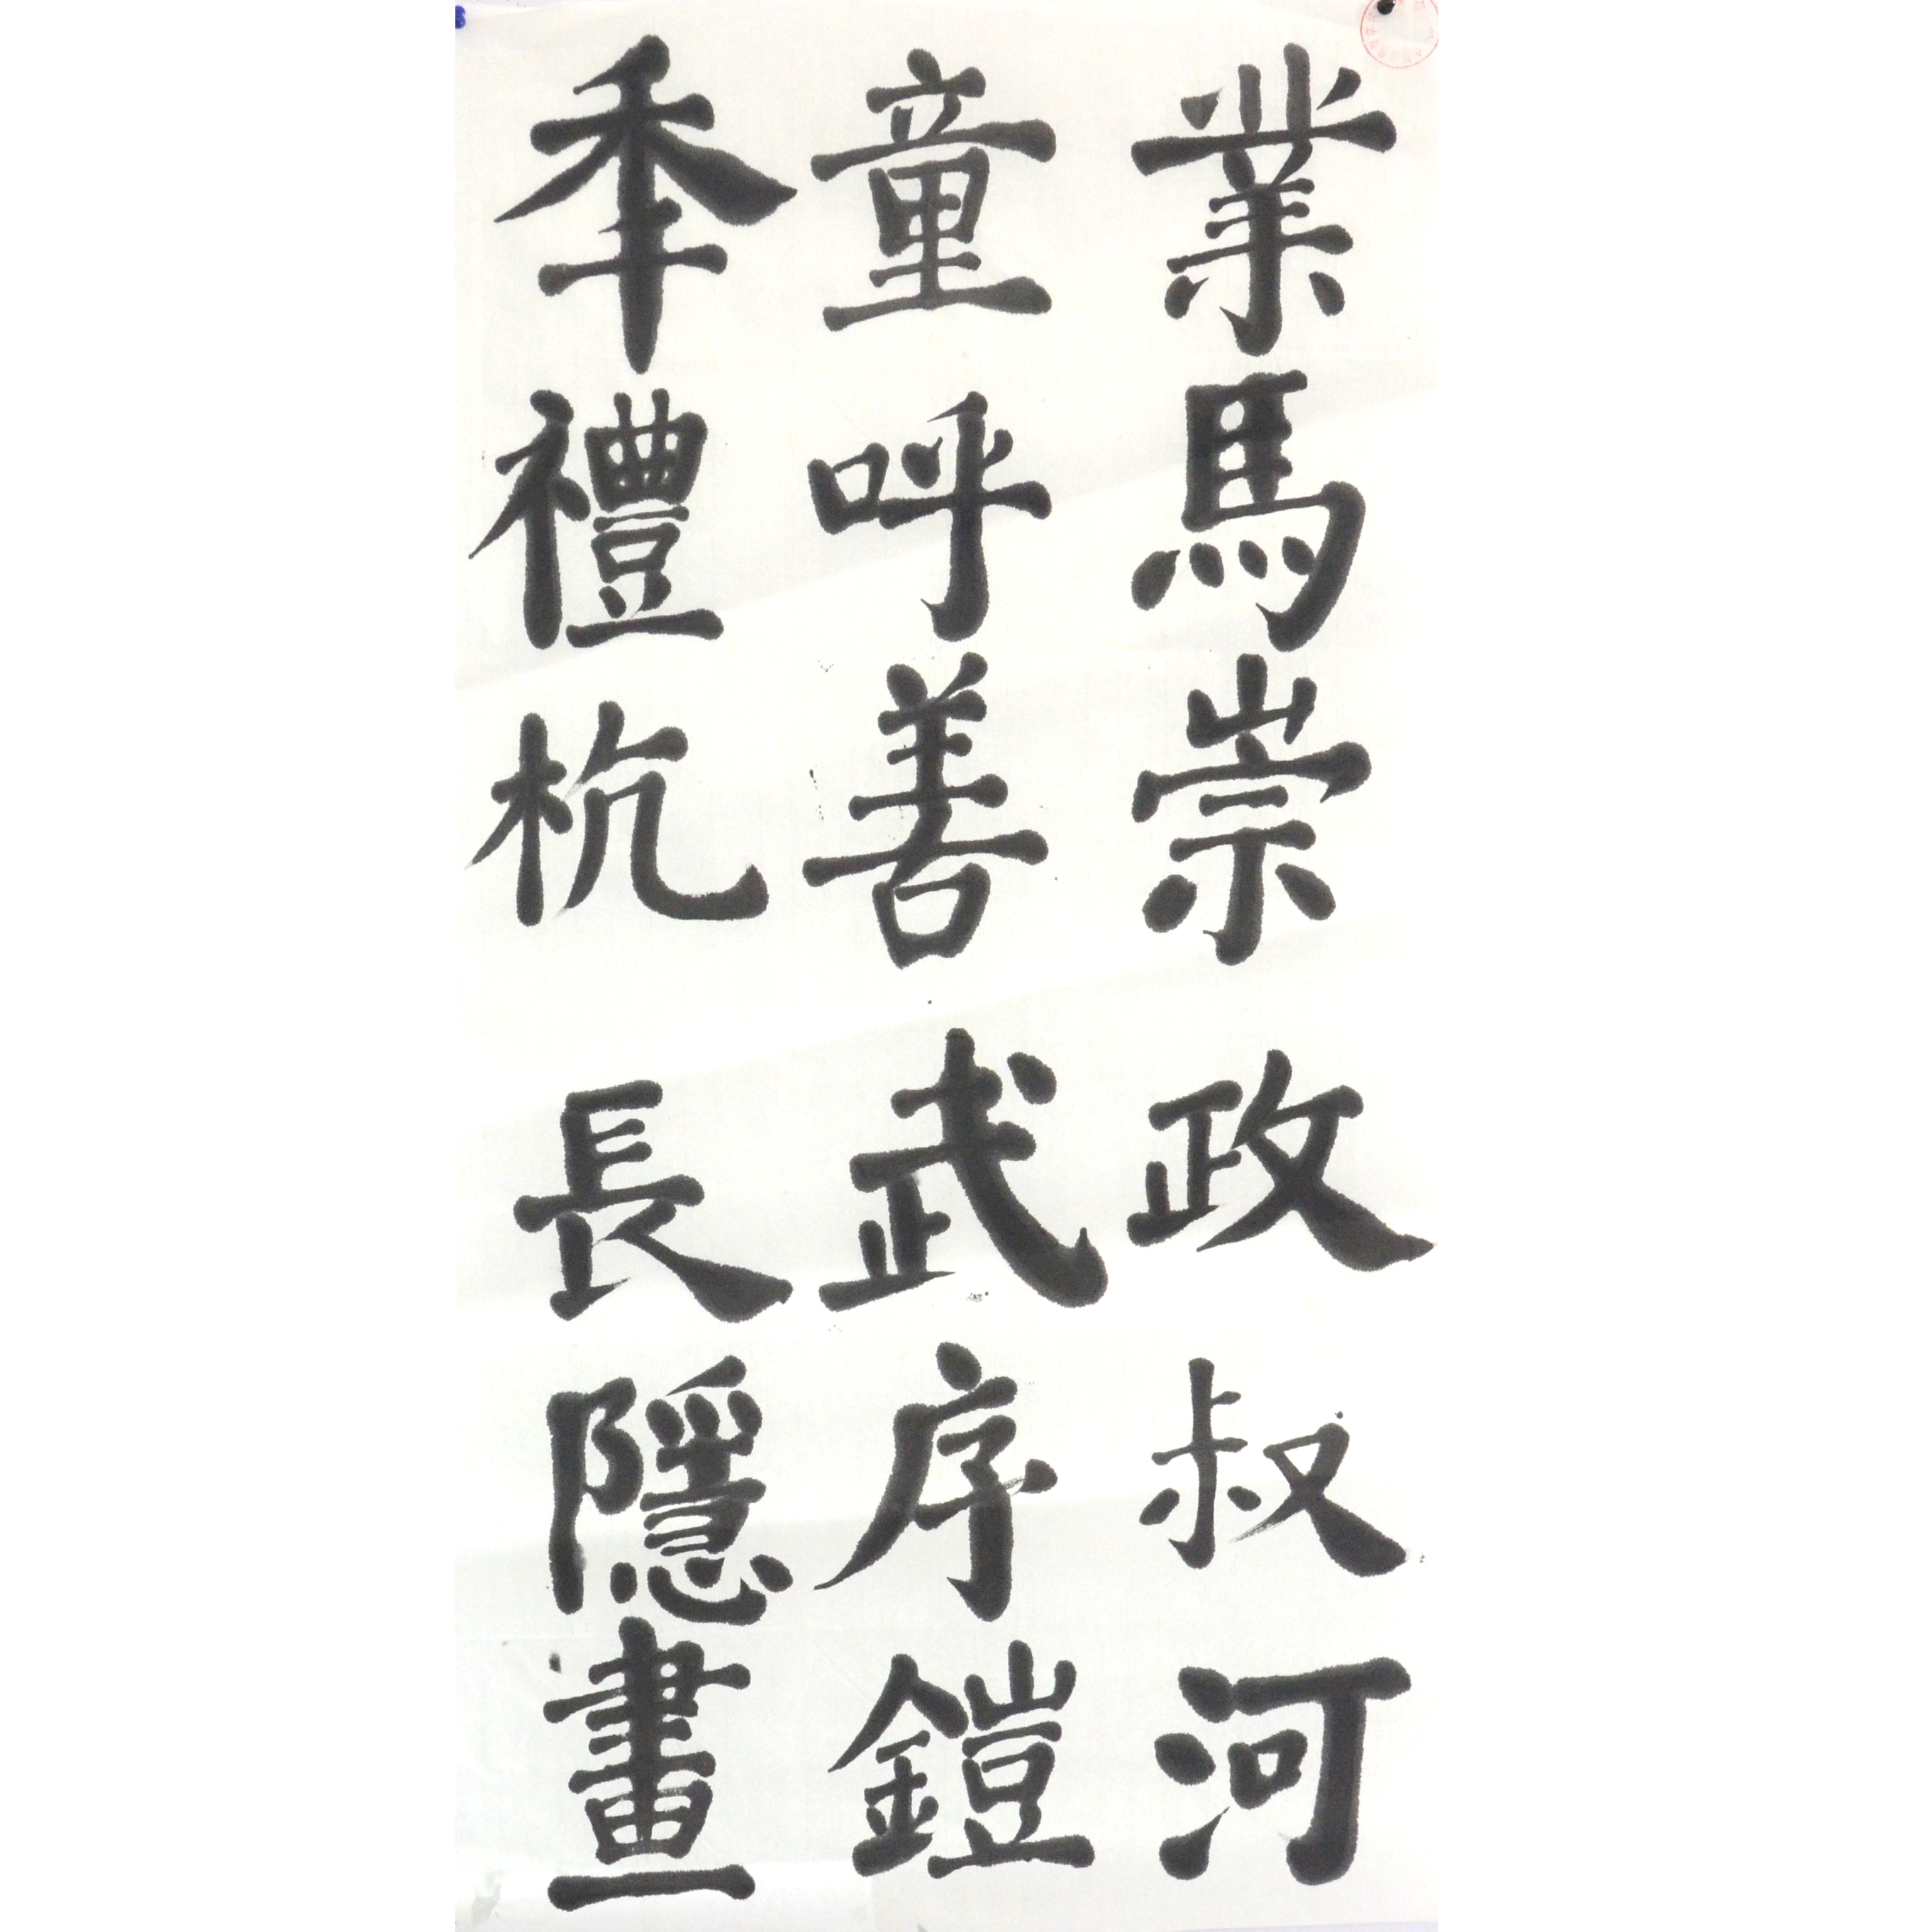 業馬崇政叔河
童呼善武序鎧
年禮杭長隱畫